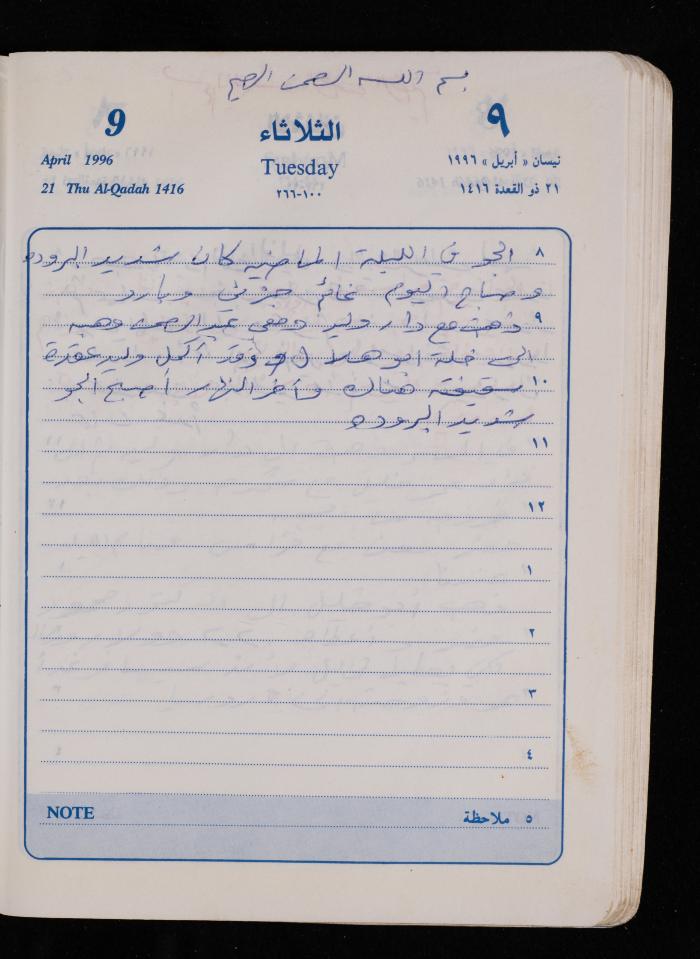 بسم الله الرحمن الرحيم
9 الثلاثاء ٩
April 1996 Tuesday نيسان « أبريل » ١٩٩٦
21 Thu Al-Qadah 1416 ٢٦٦-١٠٠ ٢١ ذو القعدة ١٤١٦
٨ الجو في الليلة الماضيه كان شديد البروده
وصباح اليوم غائم جزئي وبارد
٩ ذهبت مع دار وليد وصفي عبد الرحمن وهبه
الى خلة ابو هلال وقد أكمل وليد عقدة
١٠ سقيفته هناك وآخر النهار أصبح الجو
شديد البروده
١١
١٢
١
٢
٣
٤
NOTE ٥ ملاحظة